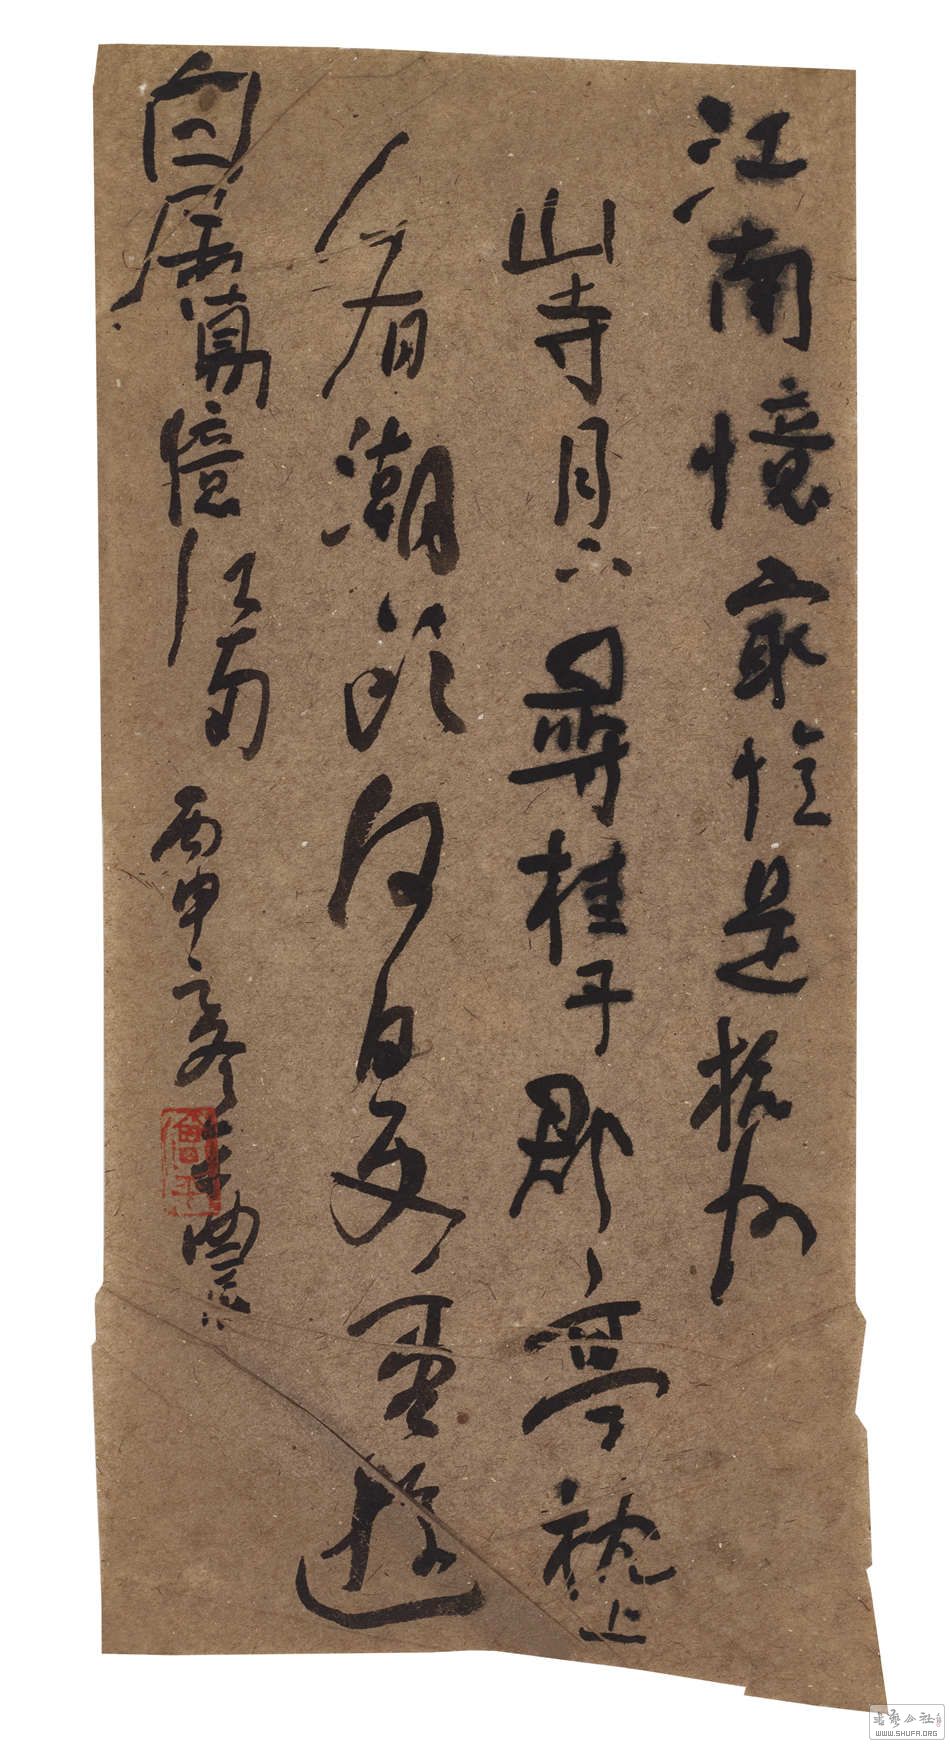 江南憶最憶是杭州
山寺月下尋桂子郡亭枕上
看潮頭何日更重遊
白居易憶江南丙申
書法公社
WWW.SHUFA.ORG